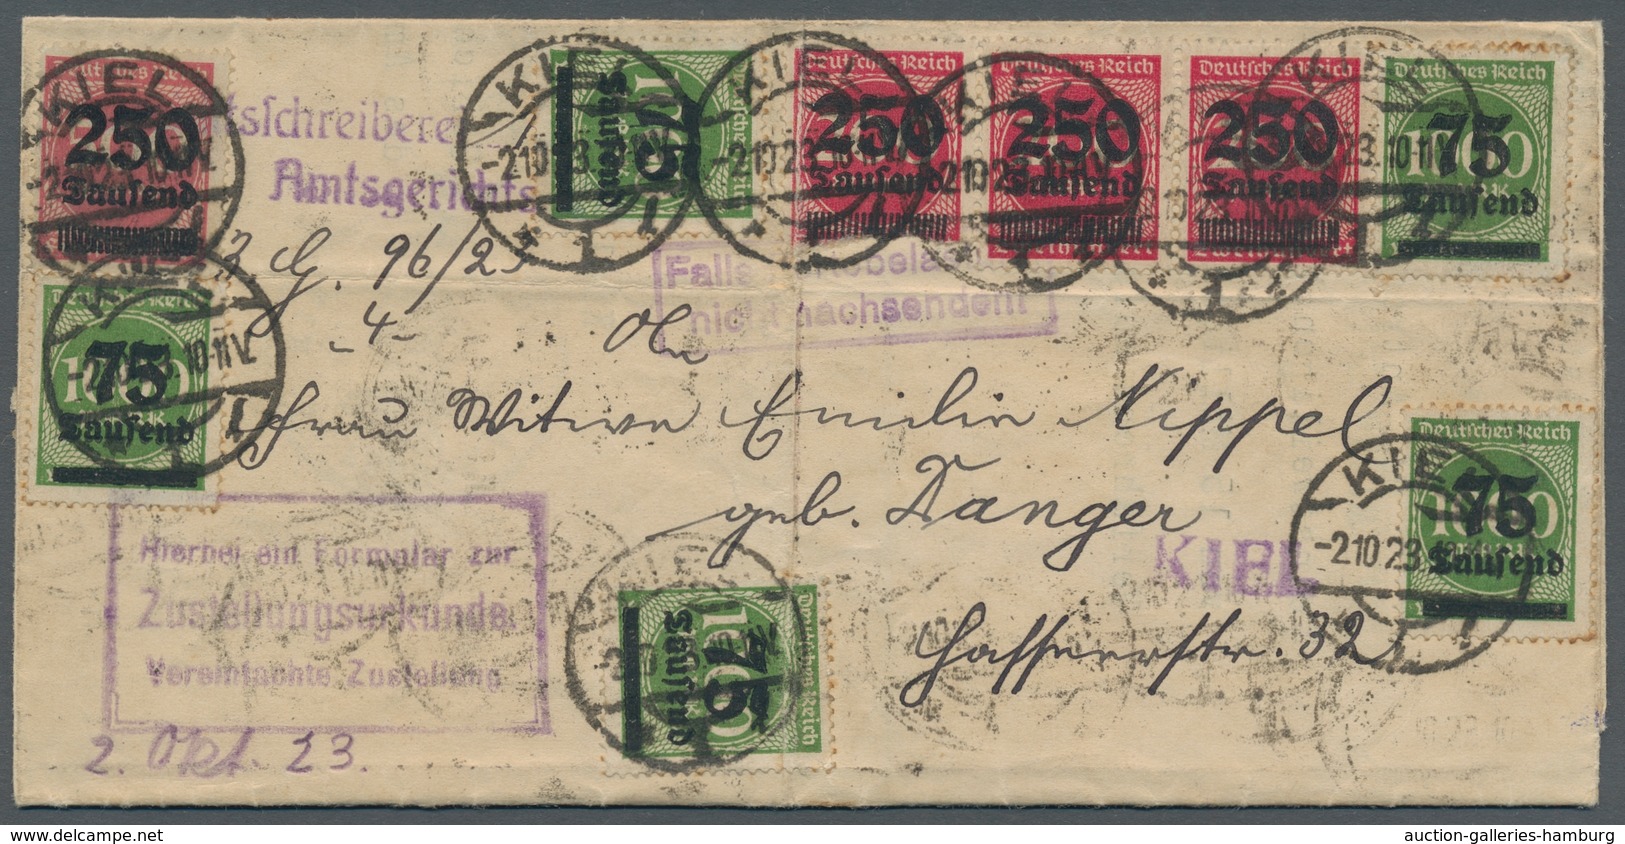 Deutsches Reich
250
Tausend
KIEL
tsschreibere
Amtsgerichts
75
Tausend
KIEL
Deutsches Reich
250
Tausend
KIEL
Deutsches Reich
250
Tausend
KIEL
Deutsches Reich
250
Tausend
KIEL
Deutsches Reich
75
Tausend
3 G. 96/23
-4-
An
Falls
nicht nachsenden!
Deutsches Reich
75
Tausend
KIEL
-2.10.23. 10-11V.
1
Frau Witwe Emilie Nippel
geb. Danger
KIEL
Hasseerstr. 32
Deutsches Reich
75
Tausend
KIEL
-2.10.23
Hierbei ein Formular zur
Zustellungsurkunde.
Vereinfachte Zustellung
2. Okt. 23.
Deutsches Reich
75
Tausend
KIEL
www.delcampe.net
auction-galleries-hamburg